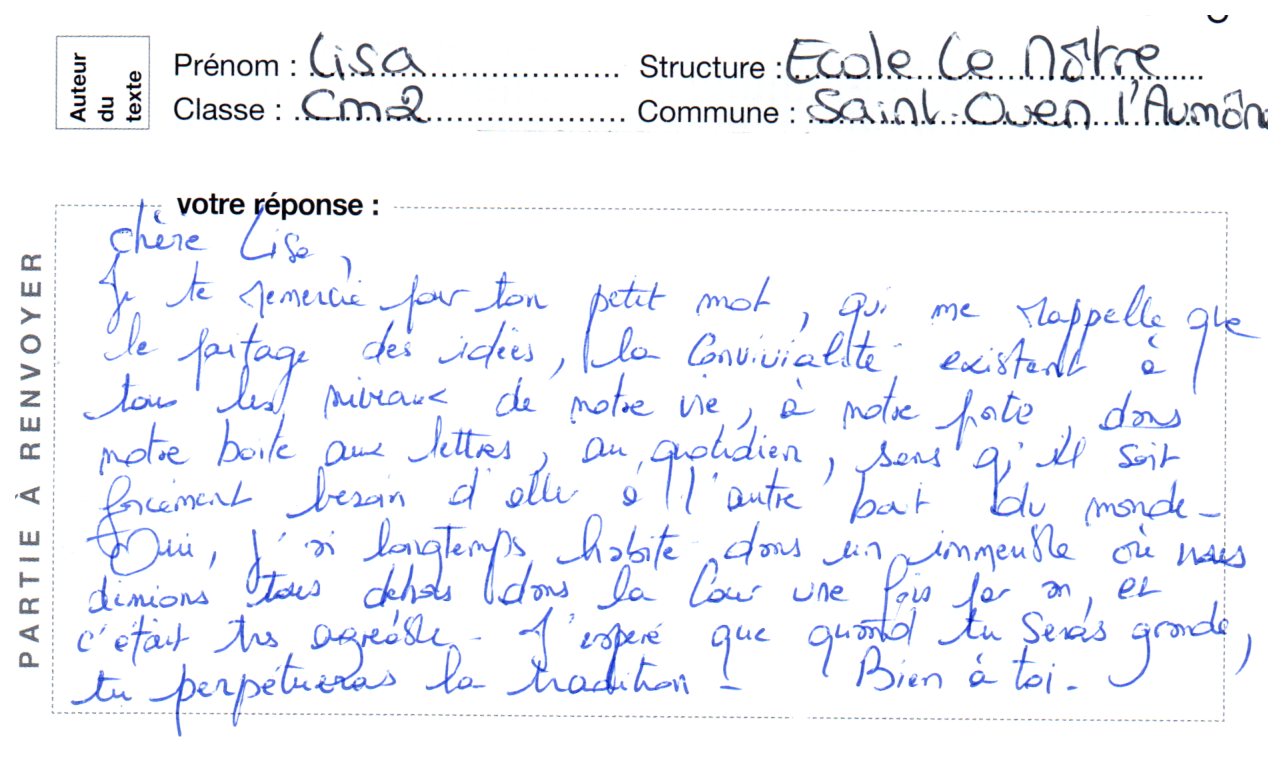 Auteur du texte
Prénom : Lisa
Structure : Ecole Le Nôtre
Classe : Cm2
Commune : Saint-Ouen l'Aumône
PARTIE À RENVOYER
votre réponse :
chère Lisa,
Je te remercie pour ton petit mot, qui me rappelle que
le partage des idées, la convivialité existent à
tous les niveaux de notre vie, à notre porte, dans
notre boite aux lettres, au quotidien, sans qu'il soit
forcément besoin d'aller à l'autre bout du monde -
Oui, j'ai longtemps habité dans un immeuble où nous
dinions tous dehors dans la Cour une fois par an, et
c'était très agréable - J'espère que quand tu seras grande,
tu perpétueras la tradition - Bien à toi.